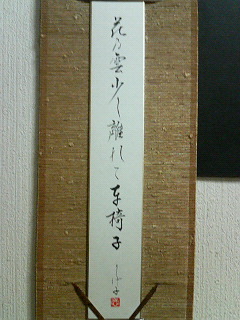 花の雲少し離れて車椅子